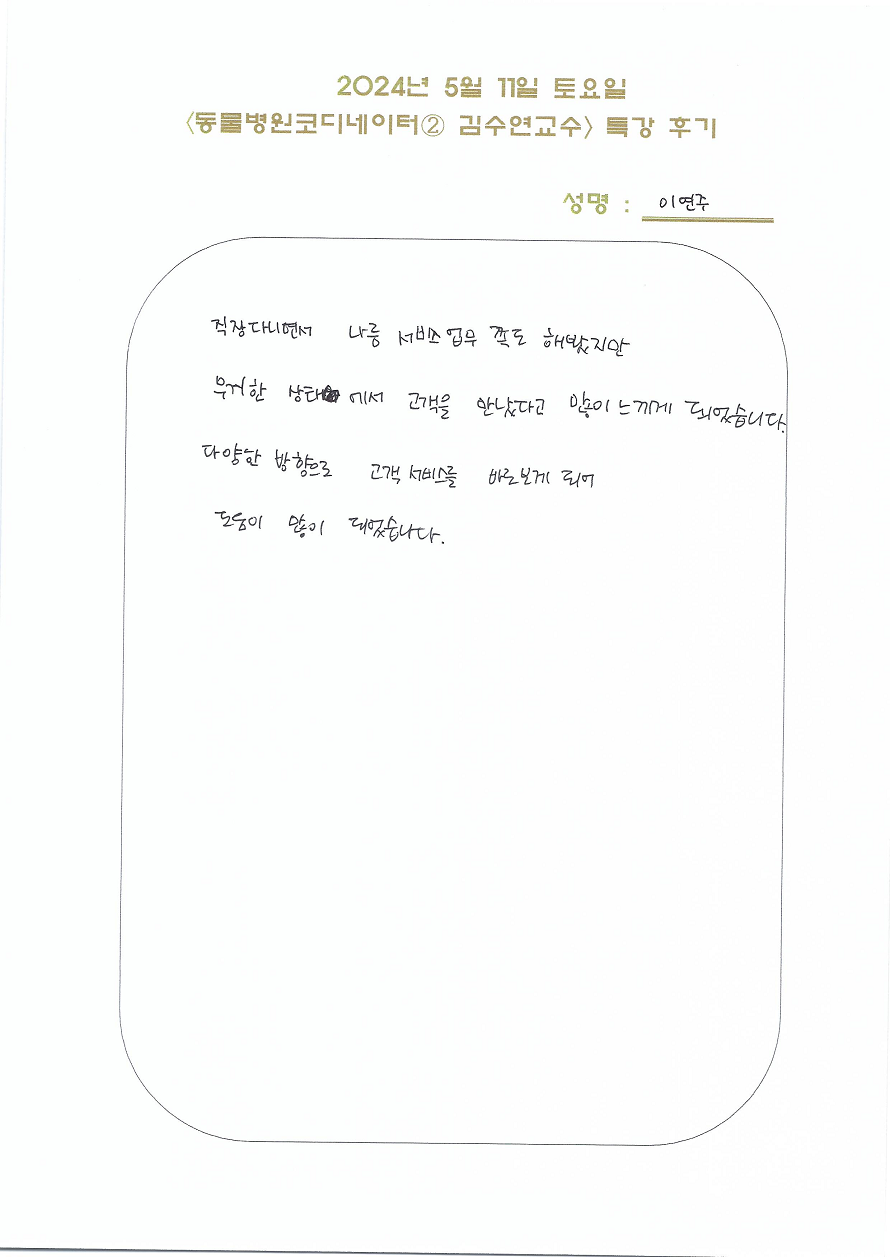 2024년 5월 11일 토요일
<동물병원코디네이터② 김수연교수> 특강 후기
성명 : 이연주
직장다니면서 나름 서비스 업무 쪽도 해봤지만
무지한 상태에서 고객을 만났다고 많이 느끼게 되었습니다.
다양한 방향으로 고객 서비스를 바로보게 되어
도움이 많이 되었습니다.